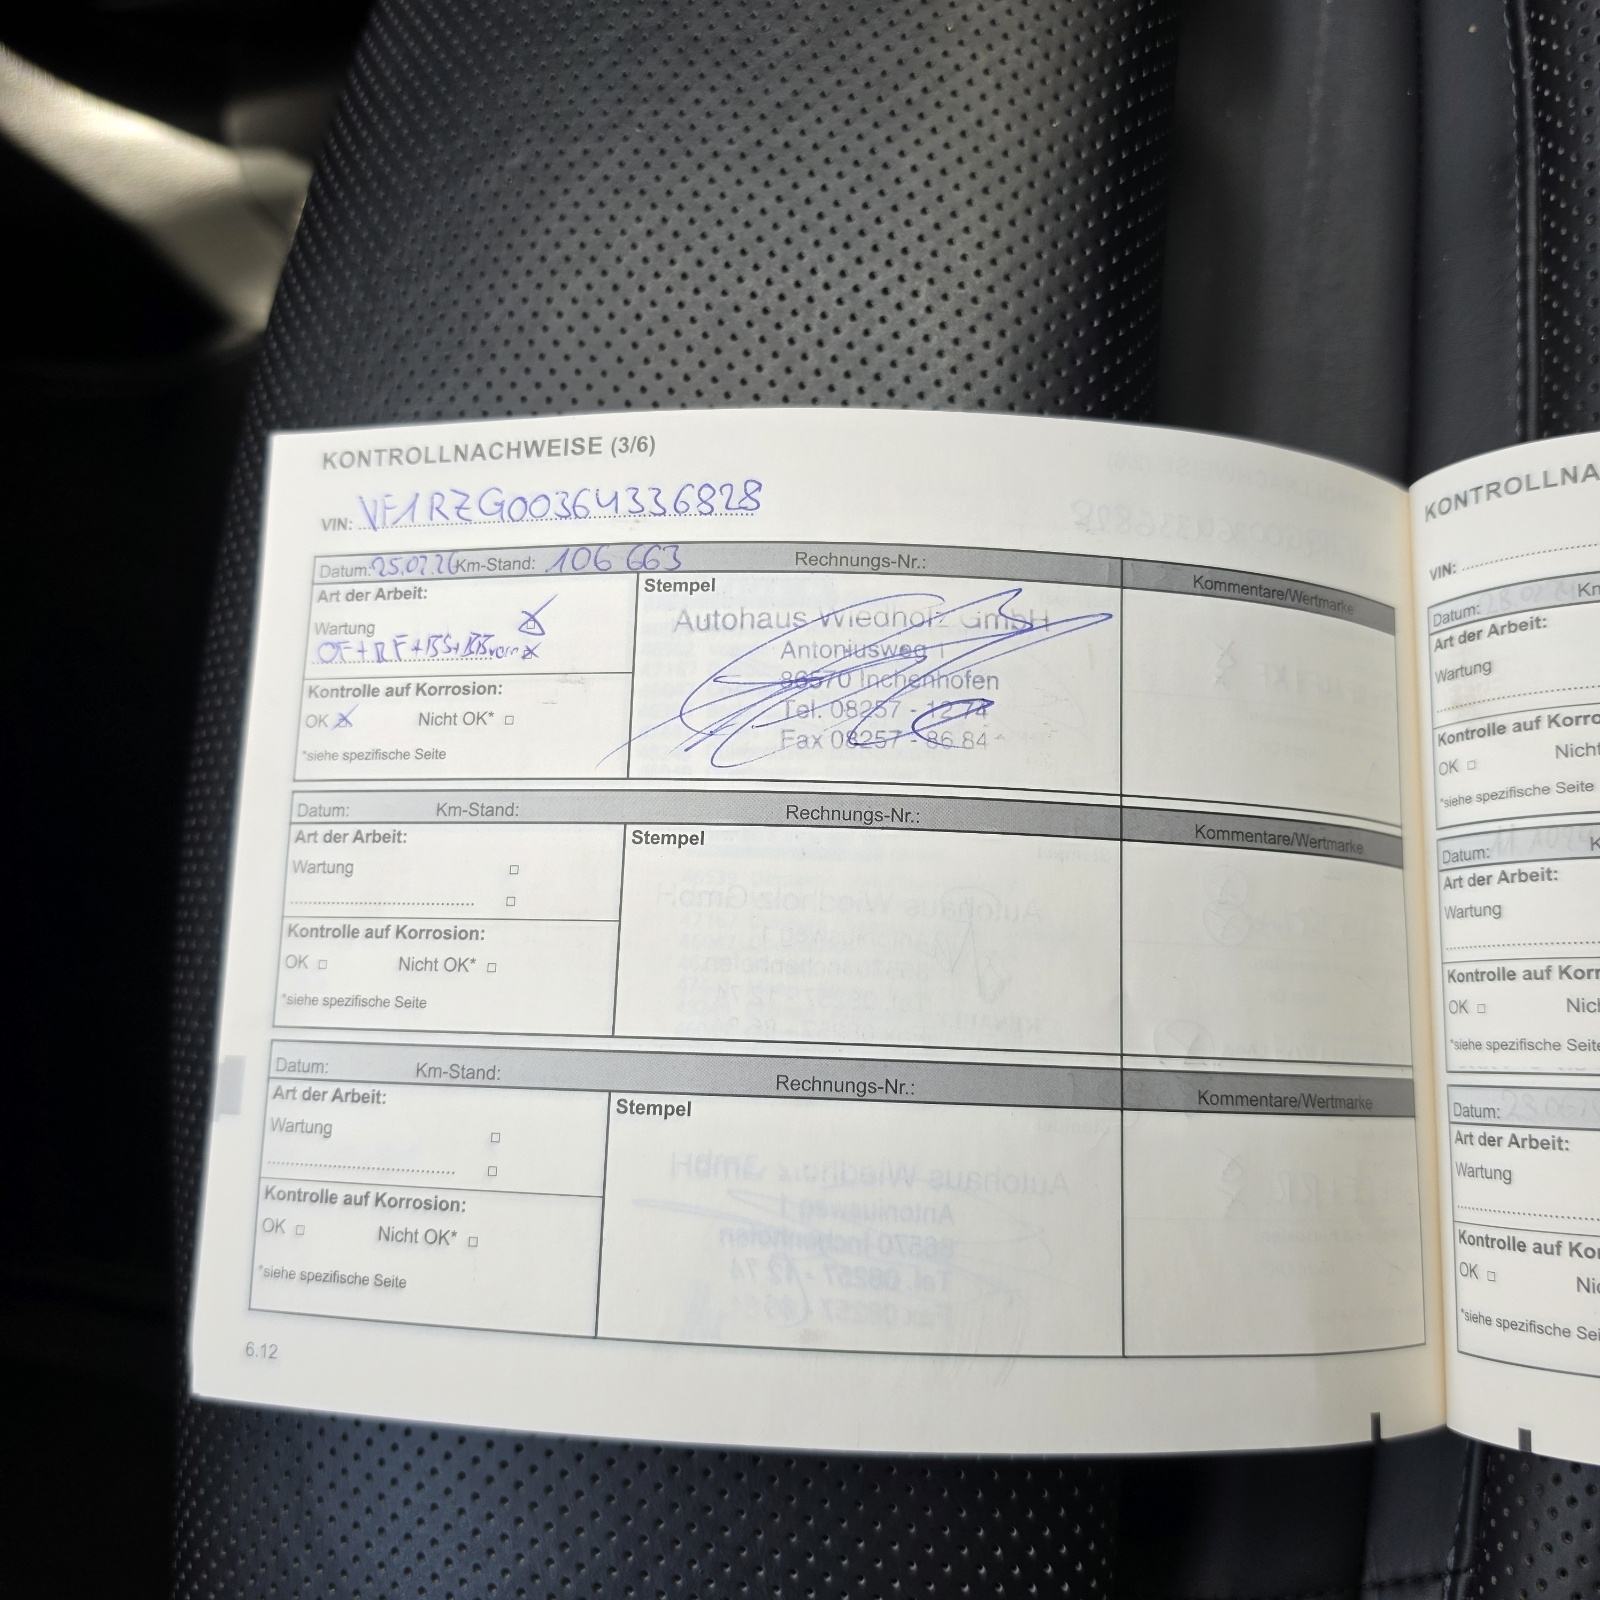 KONTROLLNACHWEISE (3/6)
VIN: VF1RZG00364336828
Datum: 25.02.26 Km-Stand: 106 663 Rechnungs-Nr.:
Kommentare/Wertmarke
Art der Arbeit:
Wartung
Stempel
Autohaus Wiedholz GmbH
Antoniusweg 1
86570 Inchenhofen
Tel. 08257 - 12 74
Fax 08257 - 86 84
Kontrolle auf Korrosion:
OK Nicht OK*
*siehe spezifische Seite
Datum: Km-Stand: Rechnungs-Nr.:
Kommentare/Wertmarke
Art der Arbeit:
Wartung
Stempel
Kontrolle auf Korrosion:
OK Nicht OK*
*siehe spezifische Seite
Datum: Km-Stand: Rechnungs-Nr.:
Kommentare/Wertmarke
Art der Arbeit:
Wartung
Stempel
Kontrolle auf Korrosion:
OK Nicht OK*
*siehe spezifische Seite
6.12
KONTROLLNA
VIN:
Datum: Km
Art der Arbeit:
Wartung
Kontrolle auf Korro
OK Nicht
*siehe spezifische Seite
Datum: K
Art der Arbeit:
Wartung
Kontrolle auf Korr
OK Nich
*siehe spezifische Seite
Datum:
Art der Arbeit:
Wartung
Kontrolle auf Ko
OK Nic
*siehe spezifische Sei